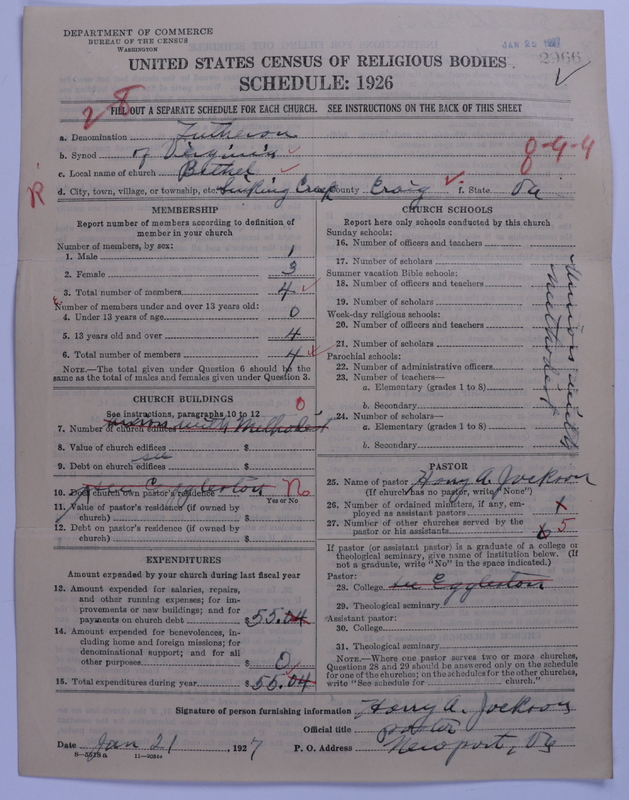 DEPARTMENT OF COMMERCE
BUREAU OF THE CENSUS
WASHINGTON
JAN 25 1927
2966
UNITED STATES CENSUS OF RELIGIOUS BODIES
SCHEDULE: 1926
28
FILL OUT A SEPARATE SCHEDULE FOR EACH CHURCH. SEE INSTRUCTIONS ON THE BACK OF THIS SHEET
a. Denomination Lutheran
b. Synod of Virginia
8-9-4
c. Local name of church Bethel
R
d. City, town, village, or township, etc. Sinking Creek County Craig f. State Va
MEMBERSHIP
Report number of members according to definition of
member in your church
Number of members, by sex:
1. Male 1
2. Female 3
3. Total number of members 4
Number of members under and over 13 years old:
4. Under 13 years of age 0
5. 13 years old and over 4
6. Total number of members 4
NOTE.—The total given under Question 6 should be the
same as the total of males and females given under Question 3.
CHURCH BUILDINGS
See instructions, paragraphs 10 to 12 0
7. Number of church edifices union with Methodist
8. Value of church edifices $
9. Debt on church edifices $
see Eggleston
10. Does church own pastor's residence No
Yes or No
11. Value of pastor's residence (if owned by
church) $
12. Debt on pastor's residence (if owned by
church) $
EXPENDITURES
Amount expended by your church during last fiscal year
13. Amount expended for salaries, repairs,
and other running expenses; for im-
provements or new buildings; and for
payments on church debt $ 55.04
14. Amount expended for benevolences, in-
cluding home and foreign missions; for
denominational support; and for all
other purposes $ 0
15. Total expenditures during year $ 55.04
CHURCH SCHOOLS
Report here only schools conducted by this church
Sunday schools:
16. Number of officers and teachers
17. Number of scholars
Summer vacation Bible schools:
18. Number of officers and teachers
19. Number of scholars
Week-day religious schools:
20. Number of officers and teachers
21. Number of scholars
Parochial schools:
22. Number of administrative officers
23. Number of teachers—
a. Elementary (grades 1 to 8)
b. Secondary
24. Number of scholars—
a. Elementary (grades 1 to 8)
b. Secondary
Union with
Methodist
PASTOR
25. Name of pastor Henry A. Jackson
(If church has no pastor, write "None")
26. Number of ordained ministers, if any, em-
ployed as assistant pastors x
27. Number of other churches served by the
pastor or his assistants 6 5
If pastor (or assistant pastor) is a graduate of a college or
theological seminary, give name of institution below. (If
not a graduate, write "No" in the space indicated.)
Pastor:
28. College see Eggleston
29. Theological seminary
Assistant pastor:
30. College
31. Theological seminary
NOTE.—Where one pastor serves two or more churches,
Questions 28 and 29 should be answered only on the schedule
for one of the churches; on the schedules for the other churches,
write "See schedule for church."
Signature of person furnishing information Henry A. Jackson
Official title pastor
Date Jan 21, 1927 P. O. Address Newport, Va
8—5518a 11—9054c